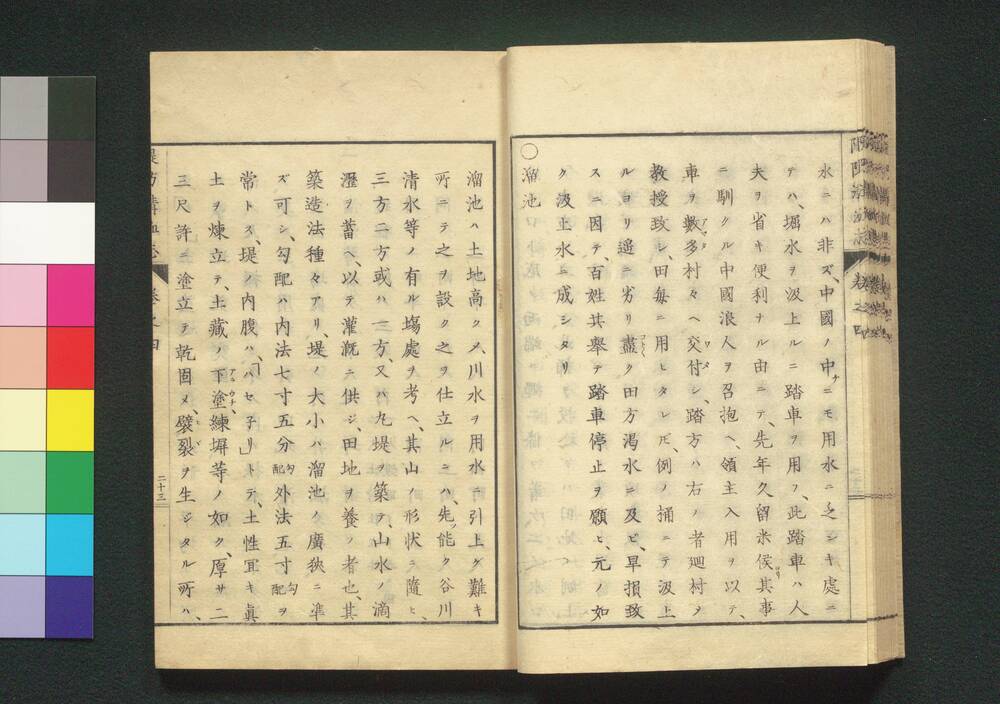 水ニハ非ズ、中國ノ中ニモ用水ニ乏シキ處ニ
テハ、堀水ヲ汲上ルニ踏車ヲ用フ、此踏車ハ人
夫ヲ省キ便利ナル由ニテ、先年久留米侯其事
ニ馴クル中國浪人ヲ召抱ヘ、領主入用ヲ以テ、
車ヲ數多村々ヘ交付シ、踏方ハ右ノ者廻村ヲ
教授致シ、田毎ニ用ヒタレ𪜈、例ノ桶ニテ汲上
ルヨリ遥ニ劣リ盡ク田方渇水ニ及ビ、旱損致
スニ因テ、百姓其舉テ踏車停止ヲ願ヒ、元ノ如
ク汲上水ニ成シタリ
○溜池
溜池ハ土地高クメ、川水ヲ用水ニ引上ゲ難キ
所ニテ之ヲ設ク之ヲ仕立ルニハ、先ッ能ク谷川
清水等ノ有ル塲處ヲ考ヘ、其山ノ形状ニ隨ヒ、
三方二方或ハ一方、又ハ九堤ヲ築テ、山水ノ滴
瀝ヲ蓄ヘ、以テ灌漑ニ供ジ、田地ヲ養ノ者也、其
築造法種々アリ、堤ノ大小ハ溜池ノ廣狹ニ準
ズ可シ、勾配ハ内法七寸五分勾配外法五寸勾配ヲ
常トス、堤ノ内腹ハ、「ハセ子リ」トテ、土性冝キ眞
土ヲ煉立テ、土藏ノ下塗練塀等ノ如ク、厚サ二
三尺許ニ塗立テ乾固メ、襞裂ヲ生ジタル所ハ、
卷之四
二十三